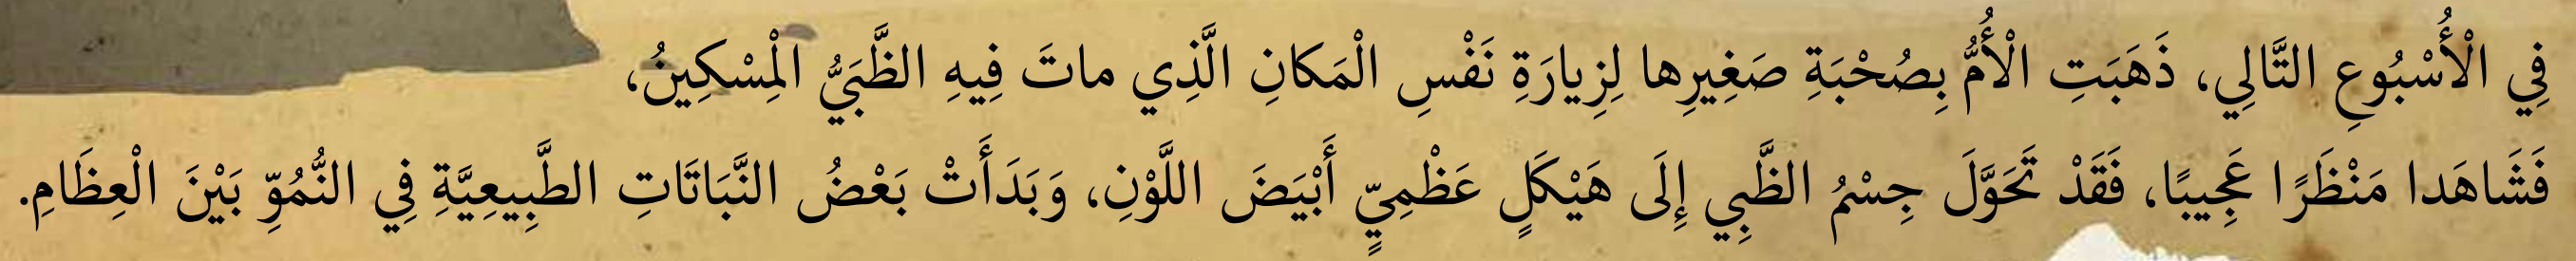 فِي الْأُسْبُوعِ التَّالِي، ذَهَبَتِ الْأُمُّ بِصُحْبَةِ صَغِيرِها لِزِيارَةِ نَفْسِ الْمَكانِ الَّذِي ماتَ فِيهِ الظَّبَيُّ الْمِسْكِينُ،
فَشَاهَدا مَنْظَرًا عَجِيبًا، فَقَدْ تَحَوَّلَ جِسْمُ الظَّبِي إِلَى هَيْكَلٍ عَظْمِيٍّ أَبْيَضَ اللَّوْنِ، وَبَدَأَتْ بَعْضُ النَّبَاتَاتِ الطَّبِيعِيَّةِ فِي النُّمُوِّ بَيْنَ الْعِظَامِ.